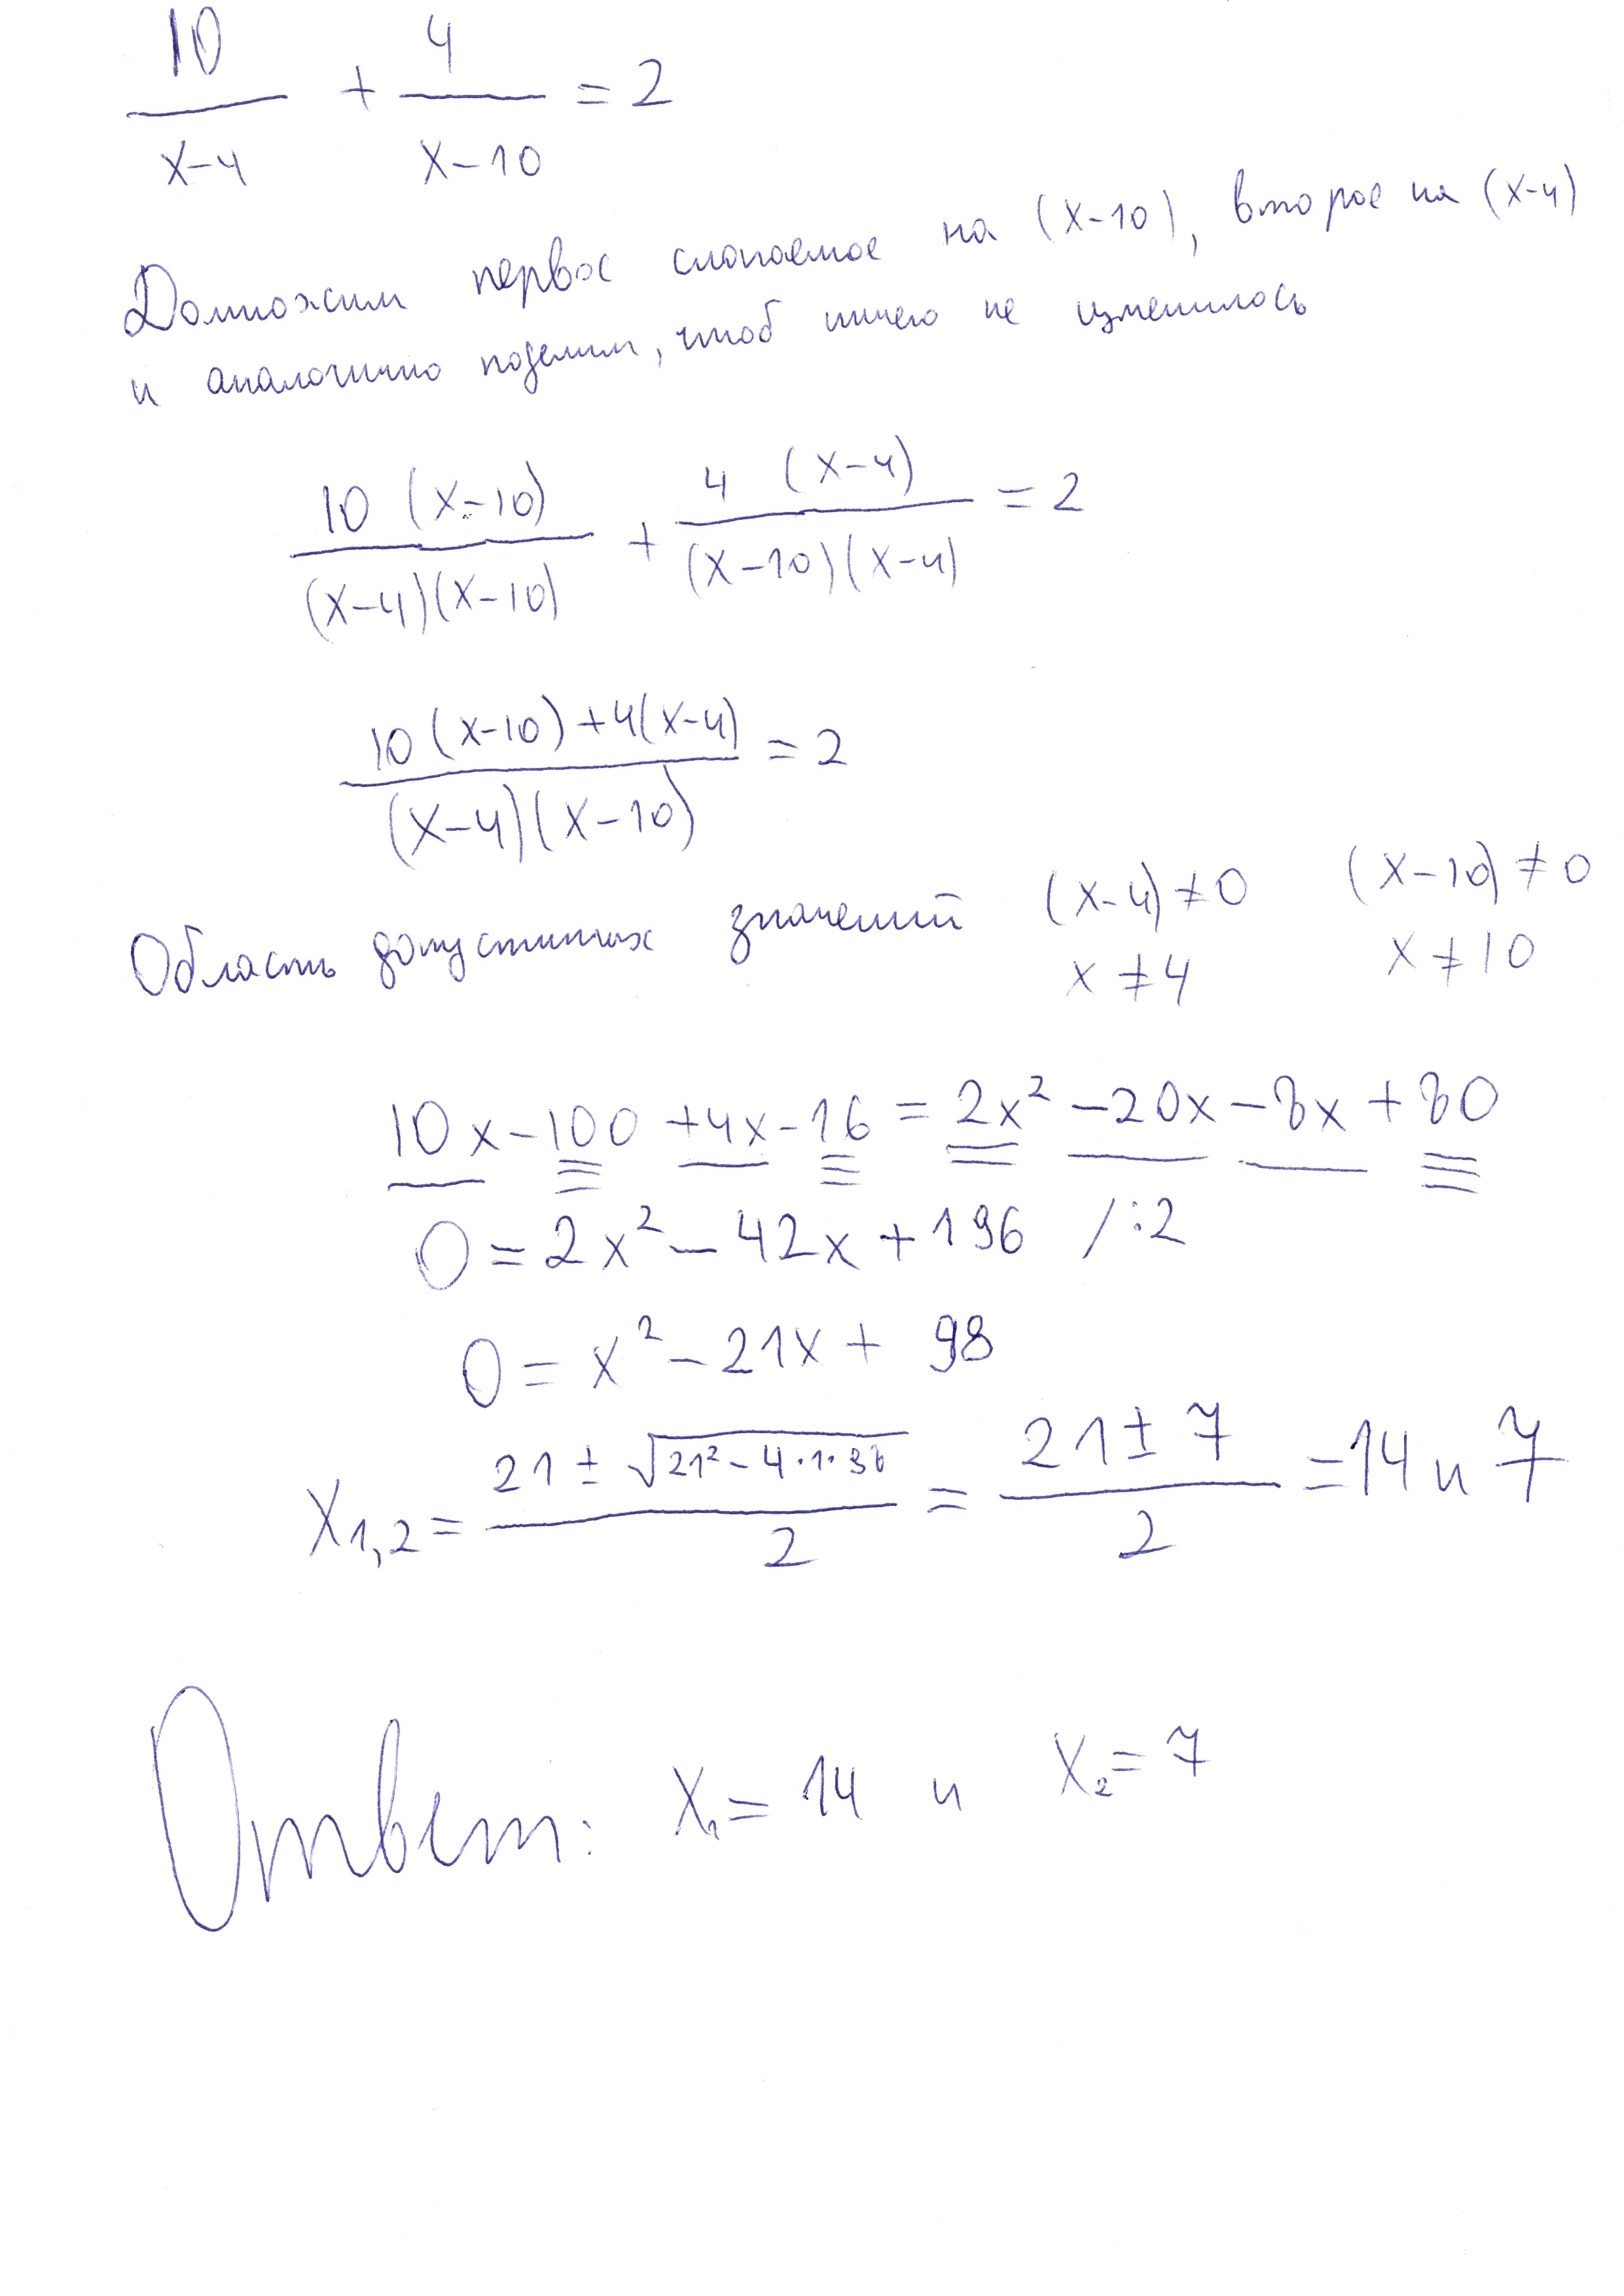 10/(x-4) + 4/(x-10) = 2
Домножим первое слагаемое на (x-10), второе на (x-4)
и аналогично поделим, чтоб ничего не изменилось
10(x-10)/((x-4)(x-10)) + 4(x-4)/((x-10)(x-4)) = 2
(10(x-10)+4(x-4))/((x-4)(x-10)) = 2
Область допустимых значений (x-4)≠0 (x-10)≠0
x≠4 x≠10
10x-100+4x-16 = 2x²-20x-8x+80
0 = 2x²-42x+196 /:2
0 = x²-21x+98
x₁,₂ = (21±√(21²-4·1·98))/2 = (21±7)/2 = 14 и 7
Ответ: x₁=14 и x₂=7